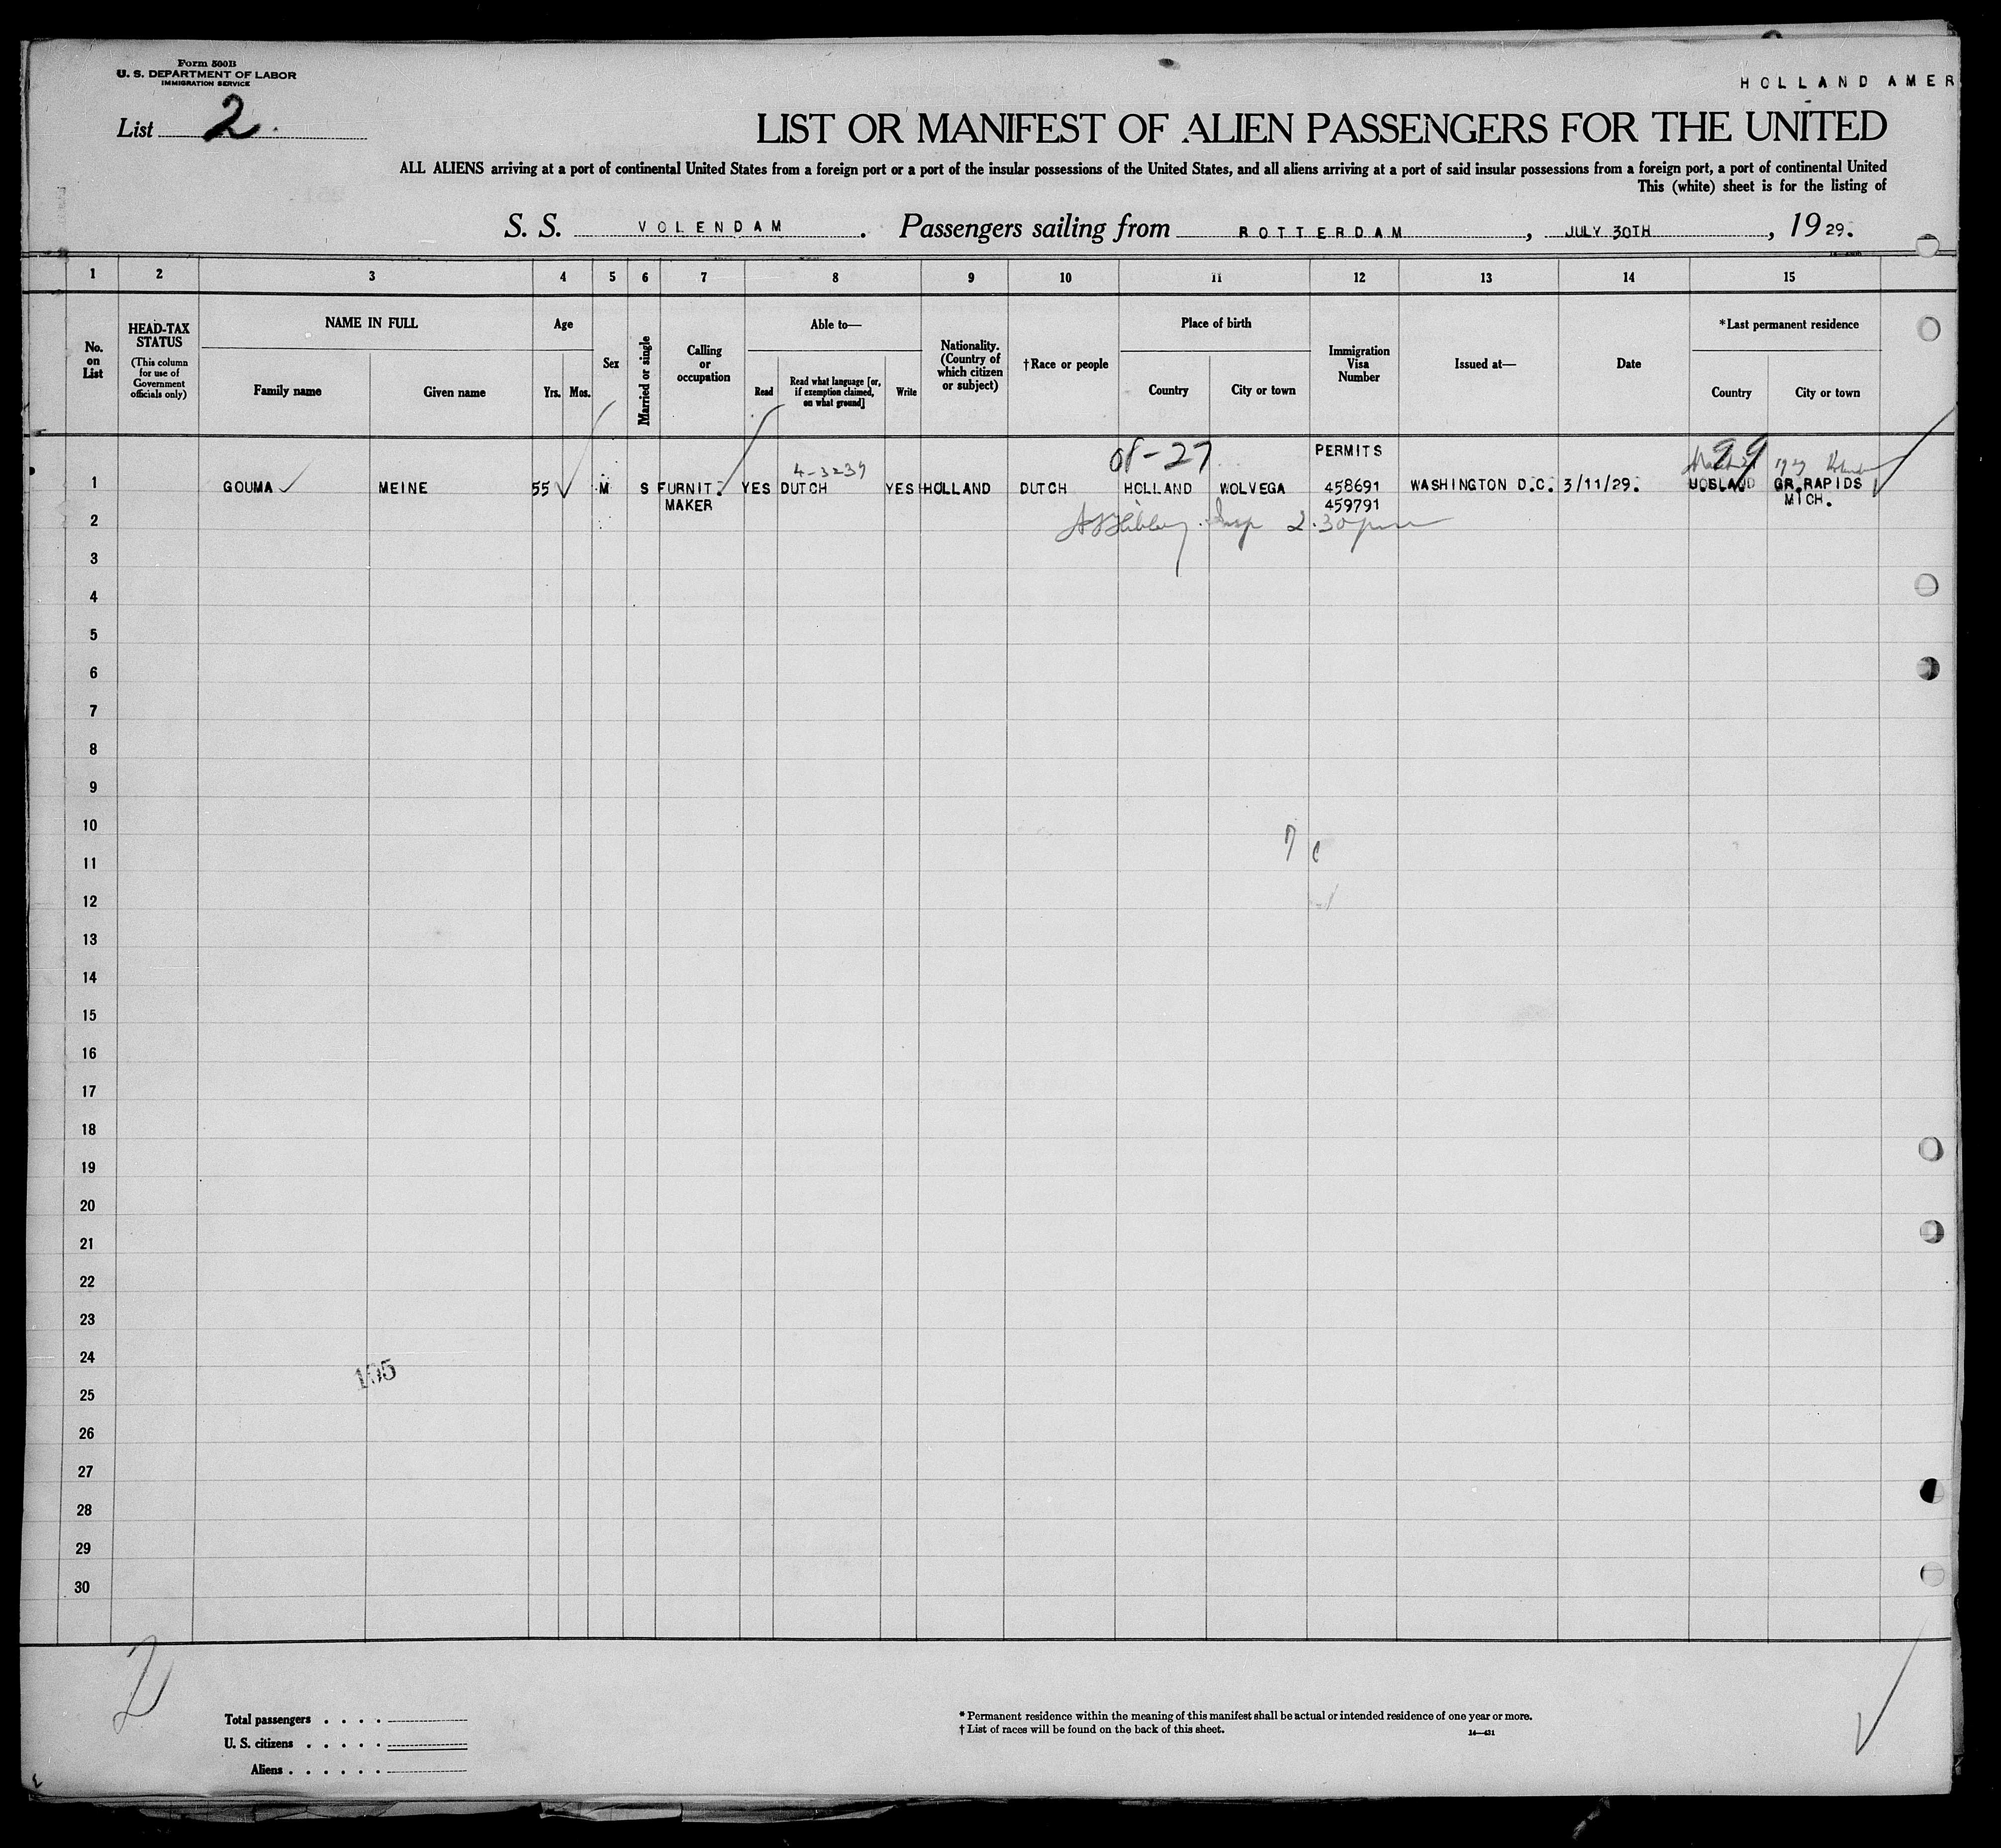 Form 500B
U. S. DEPARTMENT OF LABOR
IMMIGRATION SERVICE
HOLLAND AMER
List 2.
LIST OR MANIFEST OF ALIEN PASSENGERS FOR THE UNITED
ALL ALIENS arriving at a port of continental United States from a foreign port or a port of the insular possessions of the United States, and all aliens arriving at a port of said insular possessions from a foreign port, a port of continental United
This (white) sheet is for the listing of
S. S. VOLENDAM. Passengers sailing from ROTTERDAM, JULY 30TH, 1929.
1 2 3 4 5 6 7 8 9 10 11 12 13 14 15
No. on List
HEAD-TAX STATUS
(This column for use of Government officials only)
NAME IN FULL
Family name
Given name
Age
Yrs. Mos.
Sex
Married or single
Calling or occupation
Able to—
Read
Read what language [or, if exemption claimed, on what ground]
Write
Nationality. (Country of which citizen or subject)
†Race or people
Place of birth
Country
City or town
Immigration Visa Number
Issued at—
Date
*Last permanent residence
Country
City or town
PERMITS
1 GOUMA MEINE 55 M S FURNIT. YES DUTCH YES HOLLAND DUTCH HOLLAND WOLVEGA 458691 WASHINGTON D.C. 3/11/29. GR.RAPIDS
MAKER 459791 MICH.
2 2.30 pm
3
4
5
6
7
8
9
10
11
12
13
14
15
16
17
18
19
20
21
22
23
24
105
25
26
27
28
29
30
2
Total passengers . . . .
U. S. citizens . . . . .
Aliens . . . . . .
* Permanent residence within the meaning of this manifest shall be actual or intended residence of one year or more.
† List of races will be found on the back of this sheet.
14—431